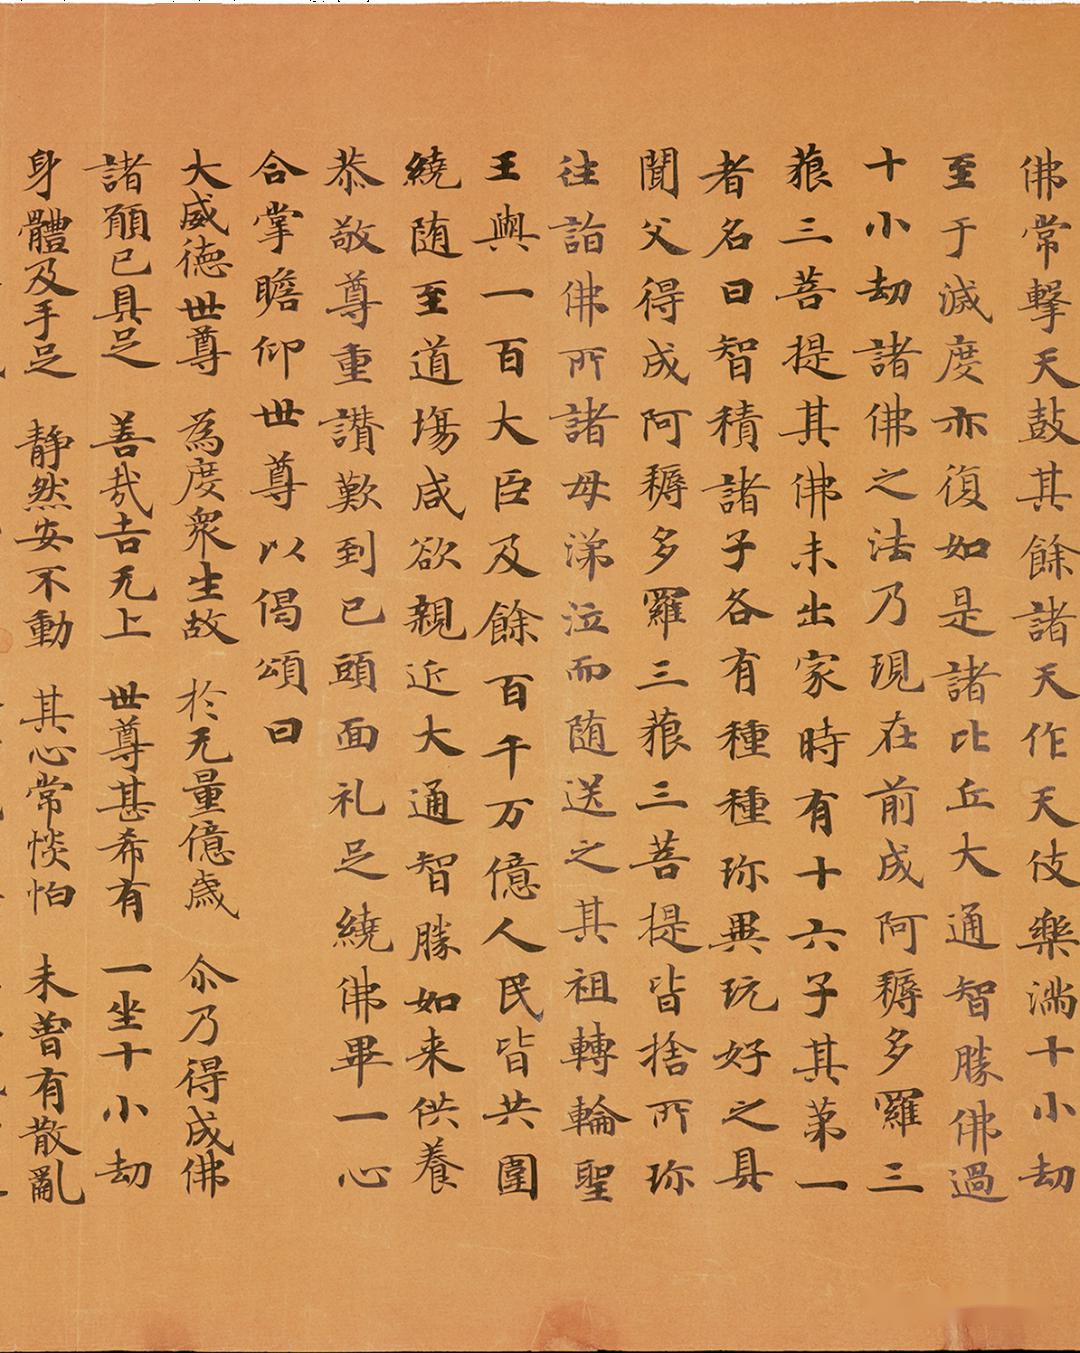 佛常擊天鼓其餘諸天作天伎樂滿十小劫
至于滅度亦復如是諸比丘大通智勝佛過
十小劫諸佛之法乃現在前成阿耨多羅三
藐三菩提其佛未出家時有十六子其第一
者名曰智積諸子各有種種珎異玩好之具
聞父得成阿耨多羅三藐三菩提皆捨所珎
往詣佛所諸母涕泣而随送之其祖轉輪聖
王與一百大臣及餘百千万億人民皆共圍
繞随至道場咸欲親近大通智勝如来供養
恭敬尊重讃歎到已頭面礼足繞佛畢一心
合掌瞻仰世尊以偈頌曰
大威德世尊 為度衆生故 於无量億歳 尒乃得成佛
諸願已具足 善哉吉无上 世尊甚希有 一坐十小劫
身體及手足 静然安不動 其心常惔怕 未曽有散亂